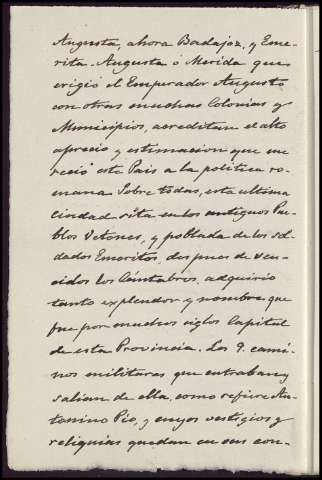 Augusta, ahora Badajoz, y Eme-
rita-Augusta ó Merida que
erigió el Emperador Augusto
con otras muchas Colonias y
Municipios, acreditan el alto
aprecio y estimacion que me
reció este Pais a la politica ro-
mana Sobre todas, esta ultima
ciudad sita en los antiguos Pue
blos Vetones, y poblada de los sol
dados Emeritos, despues de ven-
cidos los Cántabros, adquirió
tanto explendor y nombre que
fue por muchos siglos Capital
de esta Provincia. Los 9. cami
nos militares que entraban y
salian de ella, como refiere An-
tonino Pio, y cuyos vestigios y
reliquias quedan en sus con-